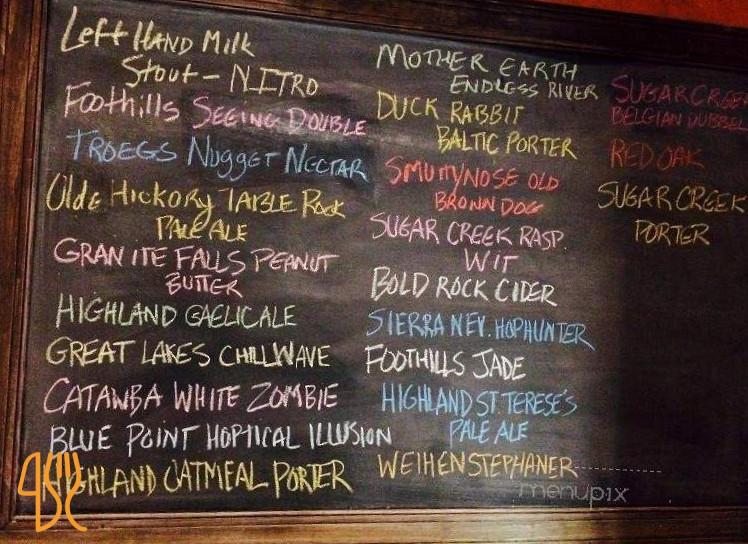 Left Hand Milk
Stout - Nitro
Foothills Seeing Double
Troegs Nugget Nectar
Olde Hickory Table Rock
Pale Ale
Granite Falls Peanut
Butter
Highland Gaelic Ale
Great Lakes Chillwave
Catawba White Zombie
Blue Point Hoptical Illusion
Highland Oatmeal Porter
Mother Earth
Endless River
Duck Rabbit
Baltic Porter
Smuttynose Old
Brown Dog
Sugar Creek Rasp.
Wit
Bold Rock Cider
Sierra Nev. Hophunter
Foothills Jade
Highland St. Terese's
Pale Ale
Weihenstephaner
Sugar Creek
Belgian Dubbel
Red Oak
Sugar Creek
Porter
menupix